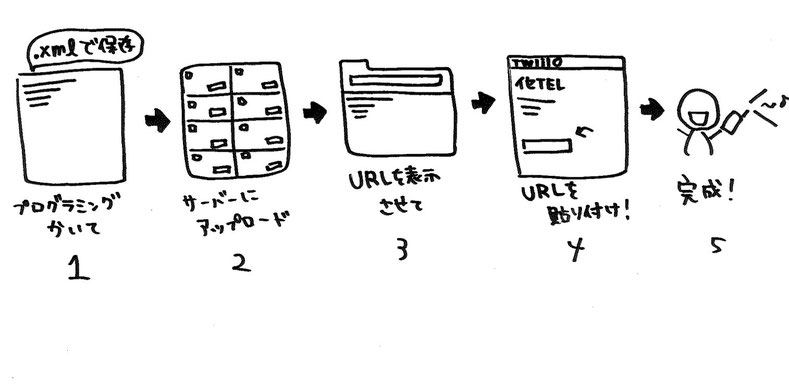 .xmlで保存
プログラミング
かいて
1
サーバーに
アップロード
2
URLを表示
させて
3
TWILIO
化TEL
URLを
貼り付け!
4
完成!
5